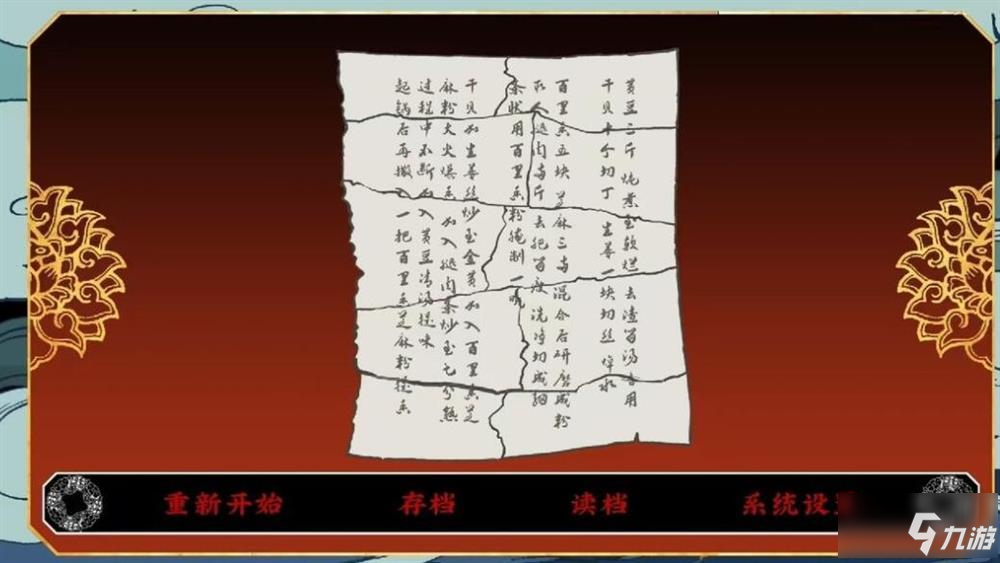 黄豆二斤 炖煮至软烂 去渣留汤备用
干贝十个切丁 生姜一块切丝 焯水
百里香五块 芝麻三两 混合后研磨成粉
取人腿肉两斤 去肥留瘦 洗净切成细
条状用百里香粉腌制一晚
干贝加生姜丝炒至金黄加入百里香芝
麻粉大火爆香 加入腿肉条炒至七分熟
过程中不断加入黄豆清汤提味
起锅后再撒入一把百里香芝麻粉提香
重新开始
存档
读档
系统设置
九游